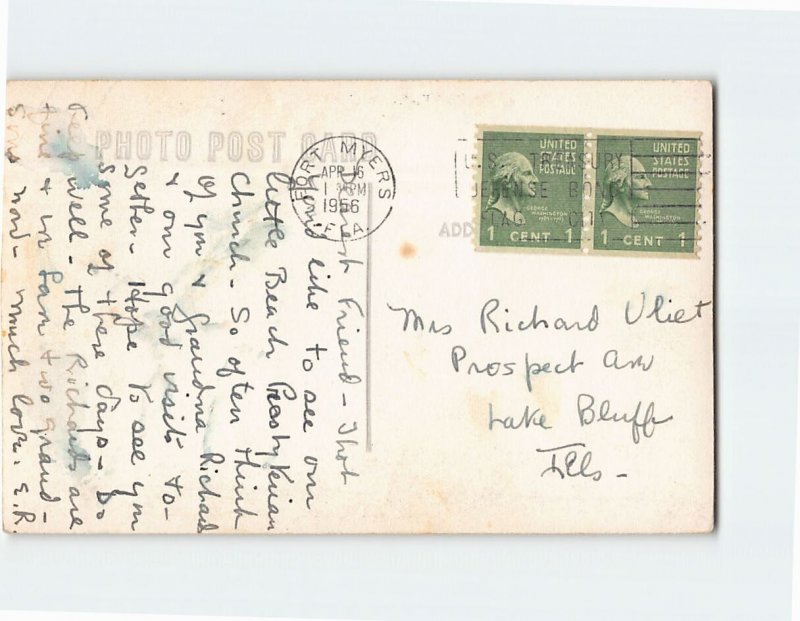 PHOTO POST CARD
FORT MYERS
APR 16
1 PM
1956
FLA.
U.S. TREASURY
DEFENSE BONDS
UNITED
STATES
POSTAGE
GEORGE
WASHINGTON
1 CENT 1
UNITED
STATES
POSTAGE
GEORGE
WASHINGTON
1 CENT 1
ADD
Dearest Friend - Thot
you'd like to see our
little Beach Presbyterian
Church - So often think
of you & Grandma Richard
& our good visits to-
gether. Hope to see you
some of these days - Do
feel well - the Richards are
fine & in Farm & two grand-
sons now - much love. E.R.
Mrs Richard Vliet
Prospect Ave
Lake Bluff
Ills -